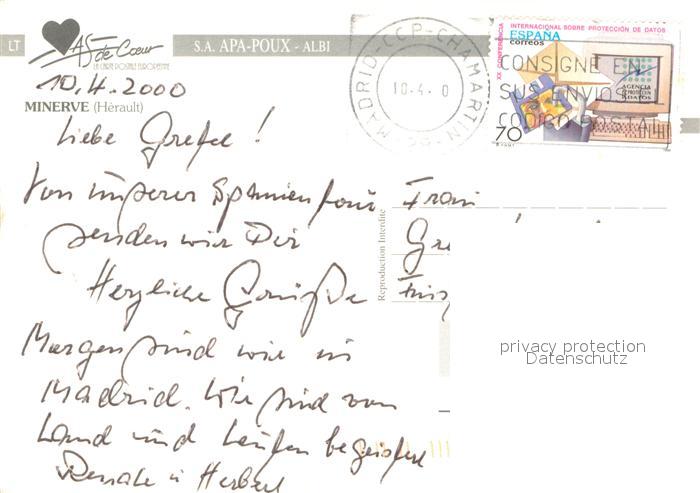 LT
AS de Cœur
LA CARTE POSTALE EUROPEENNE
S.A. APA-POUX - ALBI
10.4.2000
MINERVE (Hérault)
Liebe Gretel!
Von unserer Spanientour
senden wir Dir
Herzliche Grüße
Morgen sind wir in
Madrid. Wir sind von
Land und Leuten begeistert
Renate u Herbert
Reproduction Interdite
Frau
Gre
MADRID-CCP-CHAMARTIN
10-4- 0
XX CONFERENCIA INTERNACIONAL SOBRE PROTECCIÓN DE DATOS
ESPAÑA
correos
AGENCIA
PROTECCION
DATOS
70
CONSIGNE EN
SUS ENVIOS
CODIGO POSTAL
privacy protection
Datenschutz